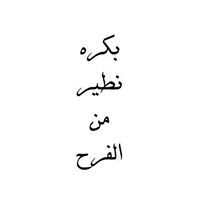 بكره
نطير
من
الفرح